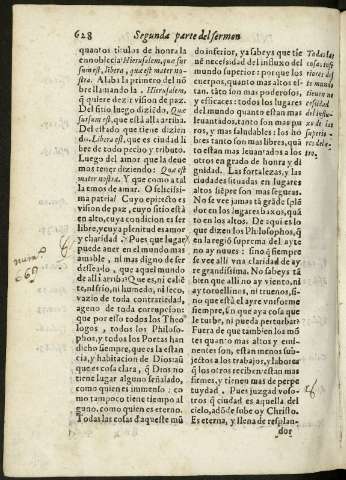 628
Segunda parte del sermon
quantos titulos de honra la
ennoblecia Hierusalem, que sur
sum est, libera, quæ est mater no-
stra. Alaba la primero del nõ
bre llamando la. Hierusalem,
q̃ quiere dezir vision de paz.
Del sitio luego diziẽdo, Que
sursum est, que està alla arriba.
Del estado que tiene dizien
do. Libera est, que es ciudad li
bre de todo pecho y tributo.
Luego del amor que la deue
mos tener diziendo: Quæ est
mater nostra. Y que como a tal
la emos de amar. O felicissi-
ma patria! Cuyo epitecto es
vision de paz, cuyo sitio està
en alto, cuya condicion es ser
libre, y cuya plenitud es amor
y charidad. Pues que lugar
puede auer en el mundo mas
amable, ni mas digno de ser
desseado, que aquel mundo
de alli arriba? Que es, ni caliẽ
te, ni frio, ni humedo, ni seco,
vazio de toda contrariedad,
ageno de toda corrupcion:
que por ello todos los Theo
logos, y todos los Philoso-
phos, y todos los Poetas han
dicho siempre, que es la estan
cia, y habitacion de Dios: aũ
que es cosa clara, q̃ Dios no
tiene lugar alguno señalado,
como quien es immenso: co
mo tampoco tiene tiempo al
guno, como quien es eterno.
Todas las cosas d'aqueste mũ
do inferior, ya sabeys que tie
nẽ necessidad del influxo del
mundo superior: porque los
cuerpos, quanto mas altos es-
tan, tãto son mas poderosos,
y efficaces: todos los lugares
del mundo quanto estan mas
leuantados, tanto son mas pu
ros, y mas saludables: los hõ
bres tanto son mas libres, quã
to estan mas leuantados a los
otros en grado de honra y di
gnidad. Las fortalezas, y las
ciudades situadas en lugares
altos siẽpre son mas seguras.
No se vee jamas tã grãde splẽ
dor en los lugares baxos, quã
to en los altos. De aqui es lo
que dizen los Philosophos, q̃
en la regiõ suprema del ayre
no ay nuues: sino q̃ siempre
se vee alli vna claridad de ay
re grandissima. No sabeys tã
bien que alli no ay viento, ni
ay toruellinos, ni truenos, si-
no que està el ayre vniforme
siempre, sin que aya cosa que
le turbe, ni pueda perturbar?
Fuera de que tambien los mõ
tes quanto mas altos y emi-
nentes son, estan menos sub-
jectos a trabajos, y labores:
q̃ los otros reciben: estan mas
firmes, y tienen mas de perpe
tuydad. Pues juzgad vosot-
tros q̃ ciudad es aquella del
cielo, adõde sube oy Christo.
Es eterna, y llena de resplan-
dor